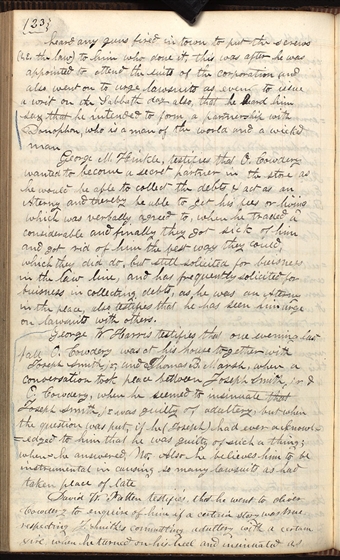 123
heard any guns fired in town to put the screws
(i.e. the law) to him who done it, this was after he was
appointed to attend the suits of the corporation and
also went on to urge lawsuits as even to issue
a writ on the Sabbath day also, that he heard him
say that he intended to form a partnership with
Donophon, who is a man of the world and a wicked
man
George M Hinkle, testifies that O. Cowdery
wanted to become a secret partner in the store as
he would be able to collect the debts & act as an
atorny and thereby be able to get his fees or living
which was verbally agreed to, when he traded
considerable and finally they got sick of him
and got rid of him the best way they could
which they did do, but still solicited for buisness
in the law line, and has frequently solicited for
buisness in collecting debts, as he was an atorny
in the peace, also testifies that he has seen him urge
on lawsuits with others.
George W Harris testifies that one evening last
fall O. Cowdery was at his house together with
Joseph Smith jr, and Thomas B. Marsh, when a
conversation took place between Joseph Smith jr &
O Cowdery, when he seemed to insinuate that
Joseph Smith jr was guilty of adultery, but when
the question was put, if he (Joseph) had ever acknow-
-ledged to him that he was guilty of such a thing;
when he answered No. Also he believes him to be
instrumental in causing so many lawsuits as had
taken place of late
David W. Patten testifies, that he went to Oliver
Cowdery to enquire of him if a certain story was true
respecting J. Smith's committing adultery with a certain
girl, when he turned on his heel and insinuated as